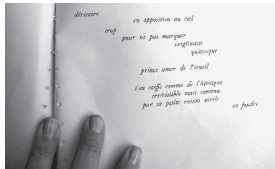 dérisoire
en opposition au ciel
trop
pour ne pas marquer
exigüment
quiconque
prince amer de l'écueil
s'en coiffe comme de l'héroïque
irrésistible mais contenu
par sa petite raison virile
en foudre